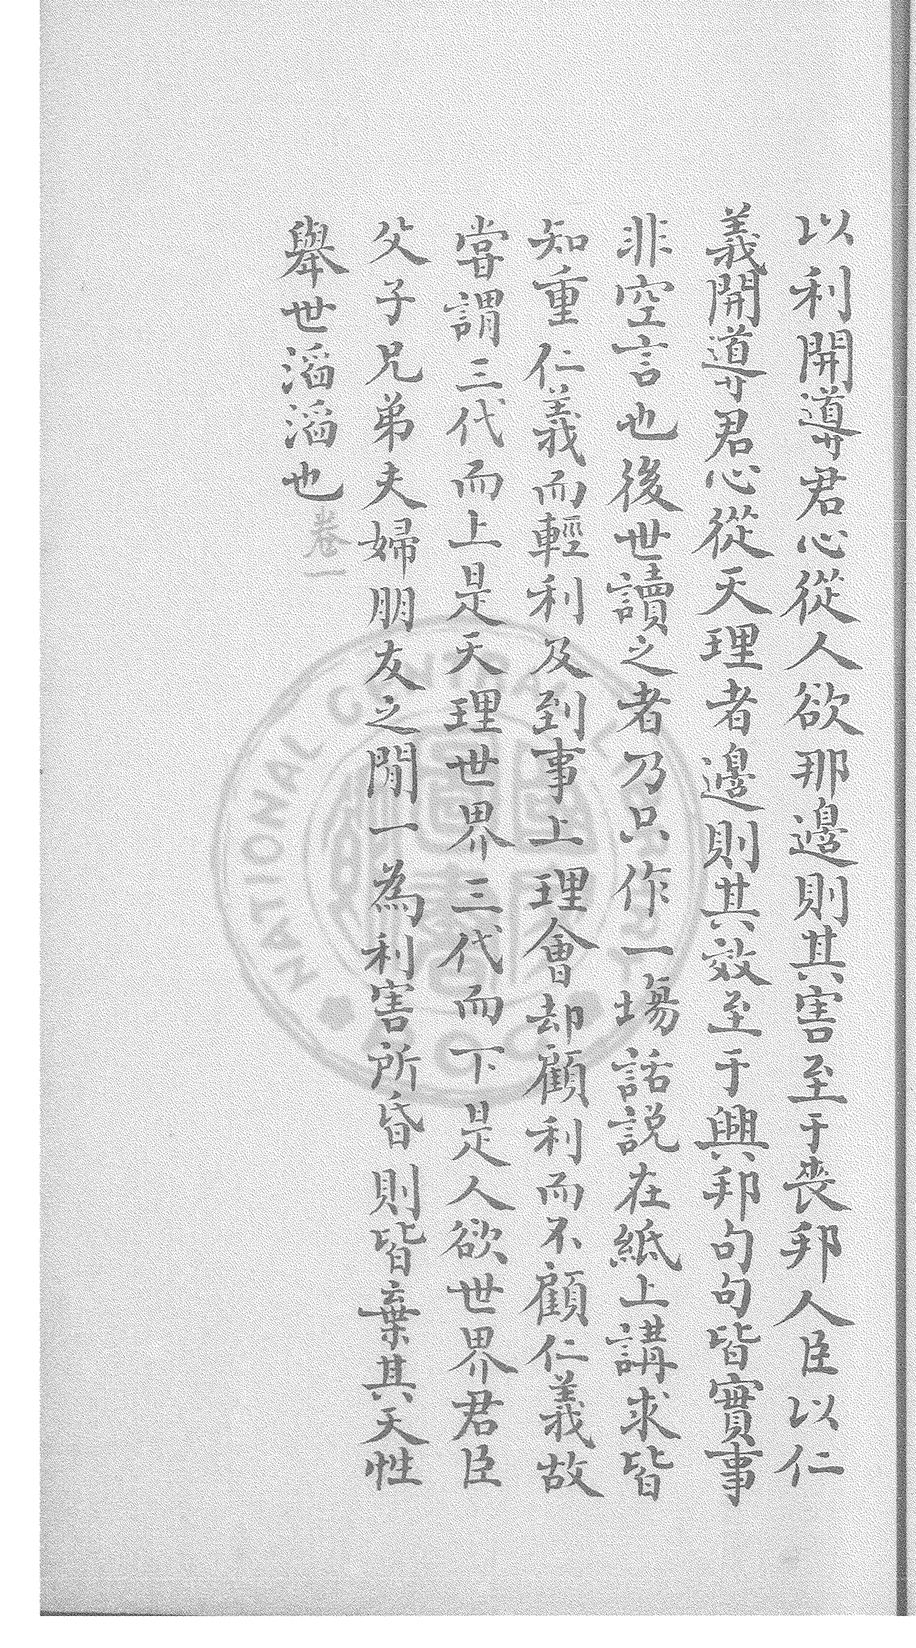 以利開導君心從人欲那邊則其害至于喪邦人臣以仁
義開導君心從天理者邊則其效至于興邦句句皆實事
非空言也後世讀之者乃只作一塲話説在紙上講求皆
知重仁義而輕利及到事上理會却顧利而不顧仁義故
嘗謂三代而上是天理世界三代而下是人欲世界君臣
父子兄弟夫婦朋友之閒一為利害所昏則皆棄其天性
舉世滔滔也
卷一
NATIONAL CENTRAL